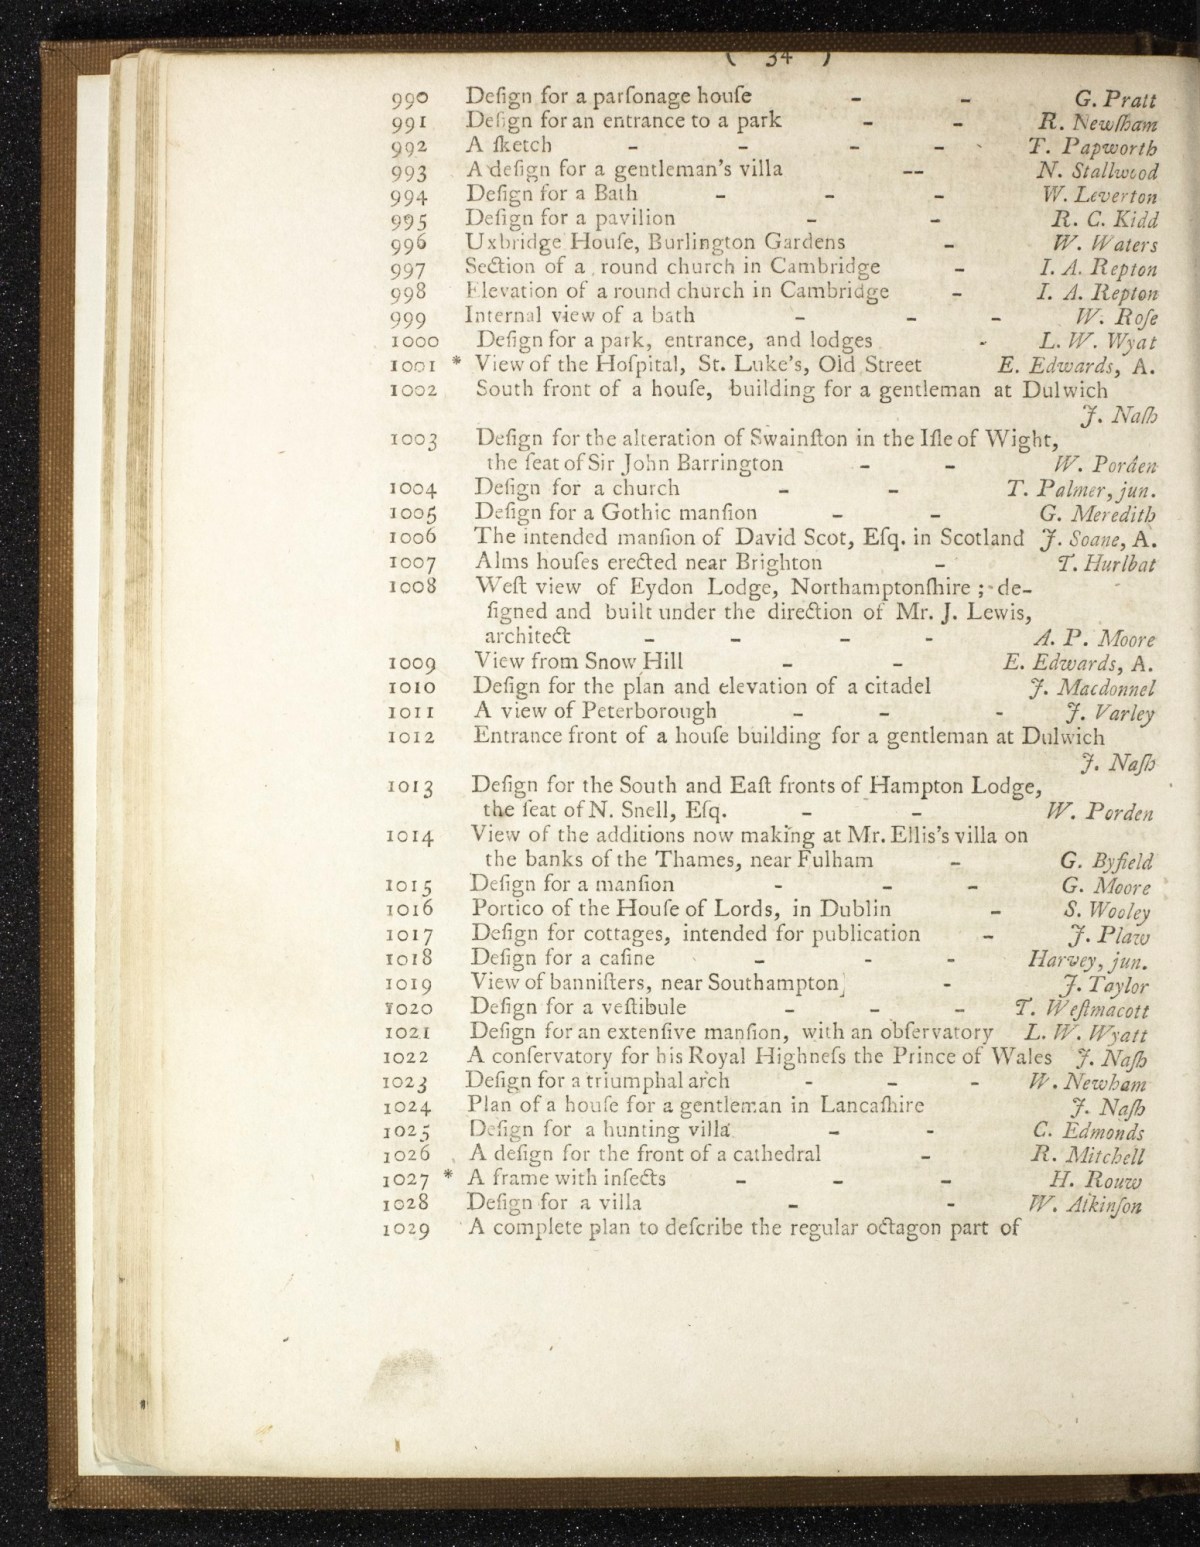 ( 34 )
990 Deſign for a parſonage houſe - - G. Pratt
991 Deſign for an entrance to a park - - R. Newſham
992 A ſketch - - - - T. Papworth
993 A deſign for a gentleman's villa -- N. Stallwood
994 Deſign for a Bath - - - W. Leverton
995 Deſign for a pavilion - - R. C. Kidd
996 Uxbridge Houſe, Burlington Gardens - W. Waters
997 Section of a round church in Cambridge - I. A. Repton
998 Elevation of a round church in Cambridge - I. A. Repton
999 Internal view of a bath - - - W. Roſe
1000 Deſign for a park, entrance, and lodges - L. W. Wyat
1001 * View of the Hoſpital, St. Luke's, Old Street E. Edwards, A.
1002 South front of a houſe, building for a gentleman at Dulwich
J. Naſh
1003 Deſign for the alteration of Swainſton in the Iſle of Wight,
the ſeat of Sir John Barrington - - W. Porden
1004 Deſign for a church - - T. Palmer, jun.
1005 Deſign for a Gothic manſion - - G. Meredith
1006 The intended manſion of David Scot, Eſq. in Scotland J. Soane, A.
1007 Alms houſes erected near Brighton - T. Hurlbat
1008 Weſt view of Eydon Lodge, Northamptonſhire ; de-
ſigned and built under the direction of Mr. J. Lewis,
architect - - - - A. P. Moore
1009 View from Snow Hill - - E. Edwards, A.
1010 Deſign for the plan and elevation of a citadel J. Macdonnel
1011 A view of Peterborough - - - J. Varley
1012 Entrance front of a houſe building for a gentleman at Dulwich
J. Naſh
1013 Deſign for the South and Eaſt fronts of Hampton Lodge,
the ſeat of N. Snell, Eſq. - - W. Porden
1014 View of the additions now making at Mr. Ellis's villa on
the banks of the Thames, near Fulham - G. Byfield
1015 Deſign for a manſion - - - G. Moore
1016 Portico of the Houſe of Lords, in Dublin - S. Wooley
1017 Deſign for cottages, intended for publication - J. Plaw
1018 Deſign for a caſine - - - Harvey, jun.
1019 View of banniſters, near Southampton - J. Taylor
1020 Deſign for a veſtibule - - - T. Weſtmacott
1021 Deſign for an extenſive manſion, with an obſervatory L. W. Wyatt
1022 A conſervatory for his Royal Highneſs the Prince of Wales J. Naſh
1023 Deſign for a triumphal arch - - - W. Newham
1024 Plan of a houſe for a gentleman in Lancaſhire J. Naſh
1025 Deſign for a hunting villa - - C. Edmonds
1026 A deſign for the front of a cathedral - R. Mitchell
1027 * A frame with inſects - - - H. Rouw
1028 Deſign for a villa - - W. Atkinſon
1029 A complete plan to deſcribe the regular octagon part of